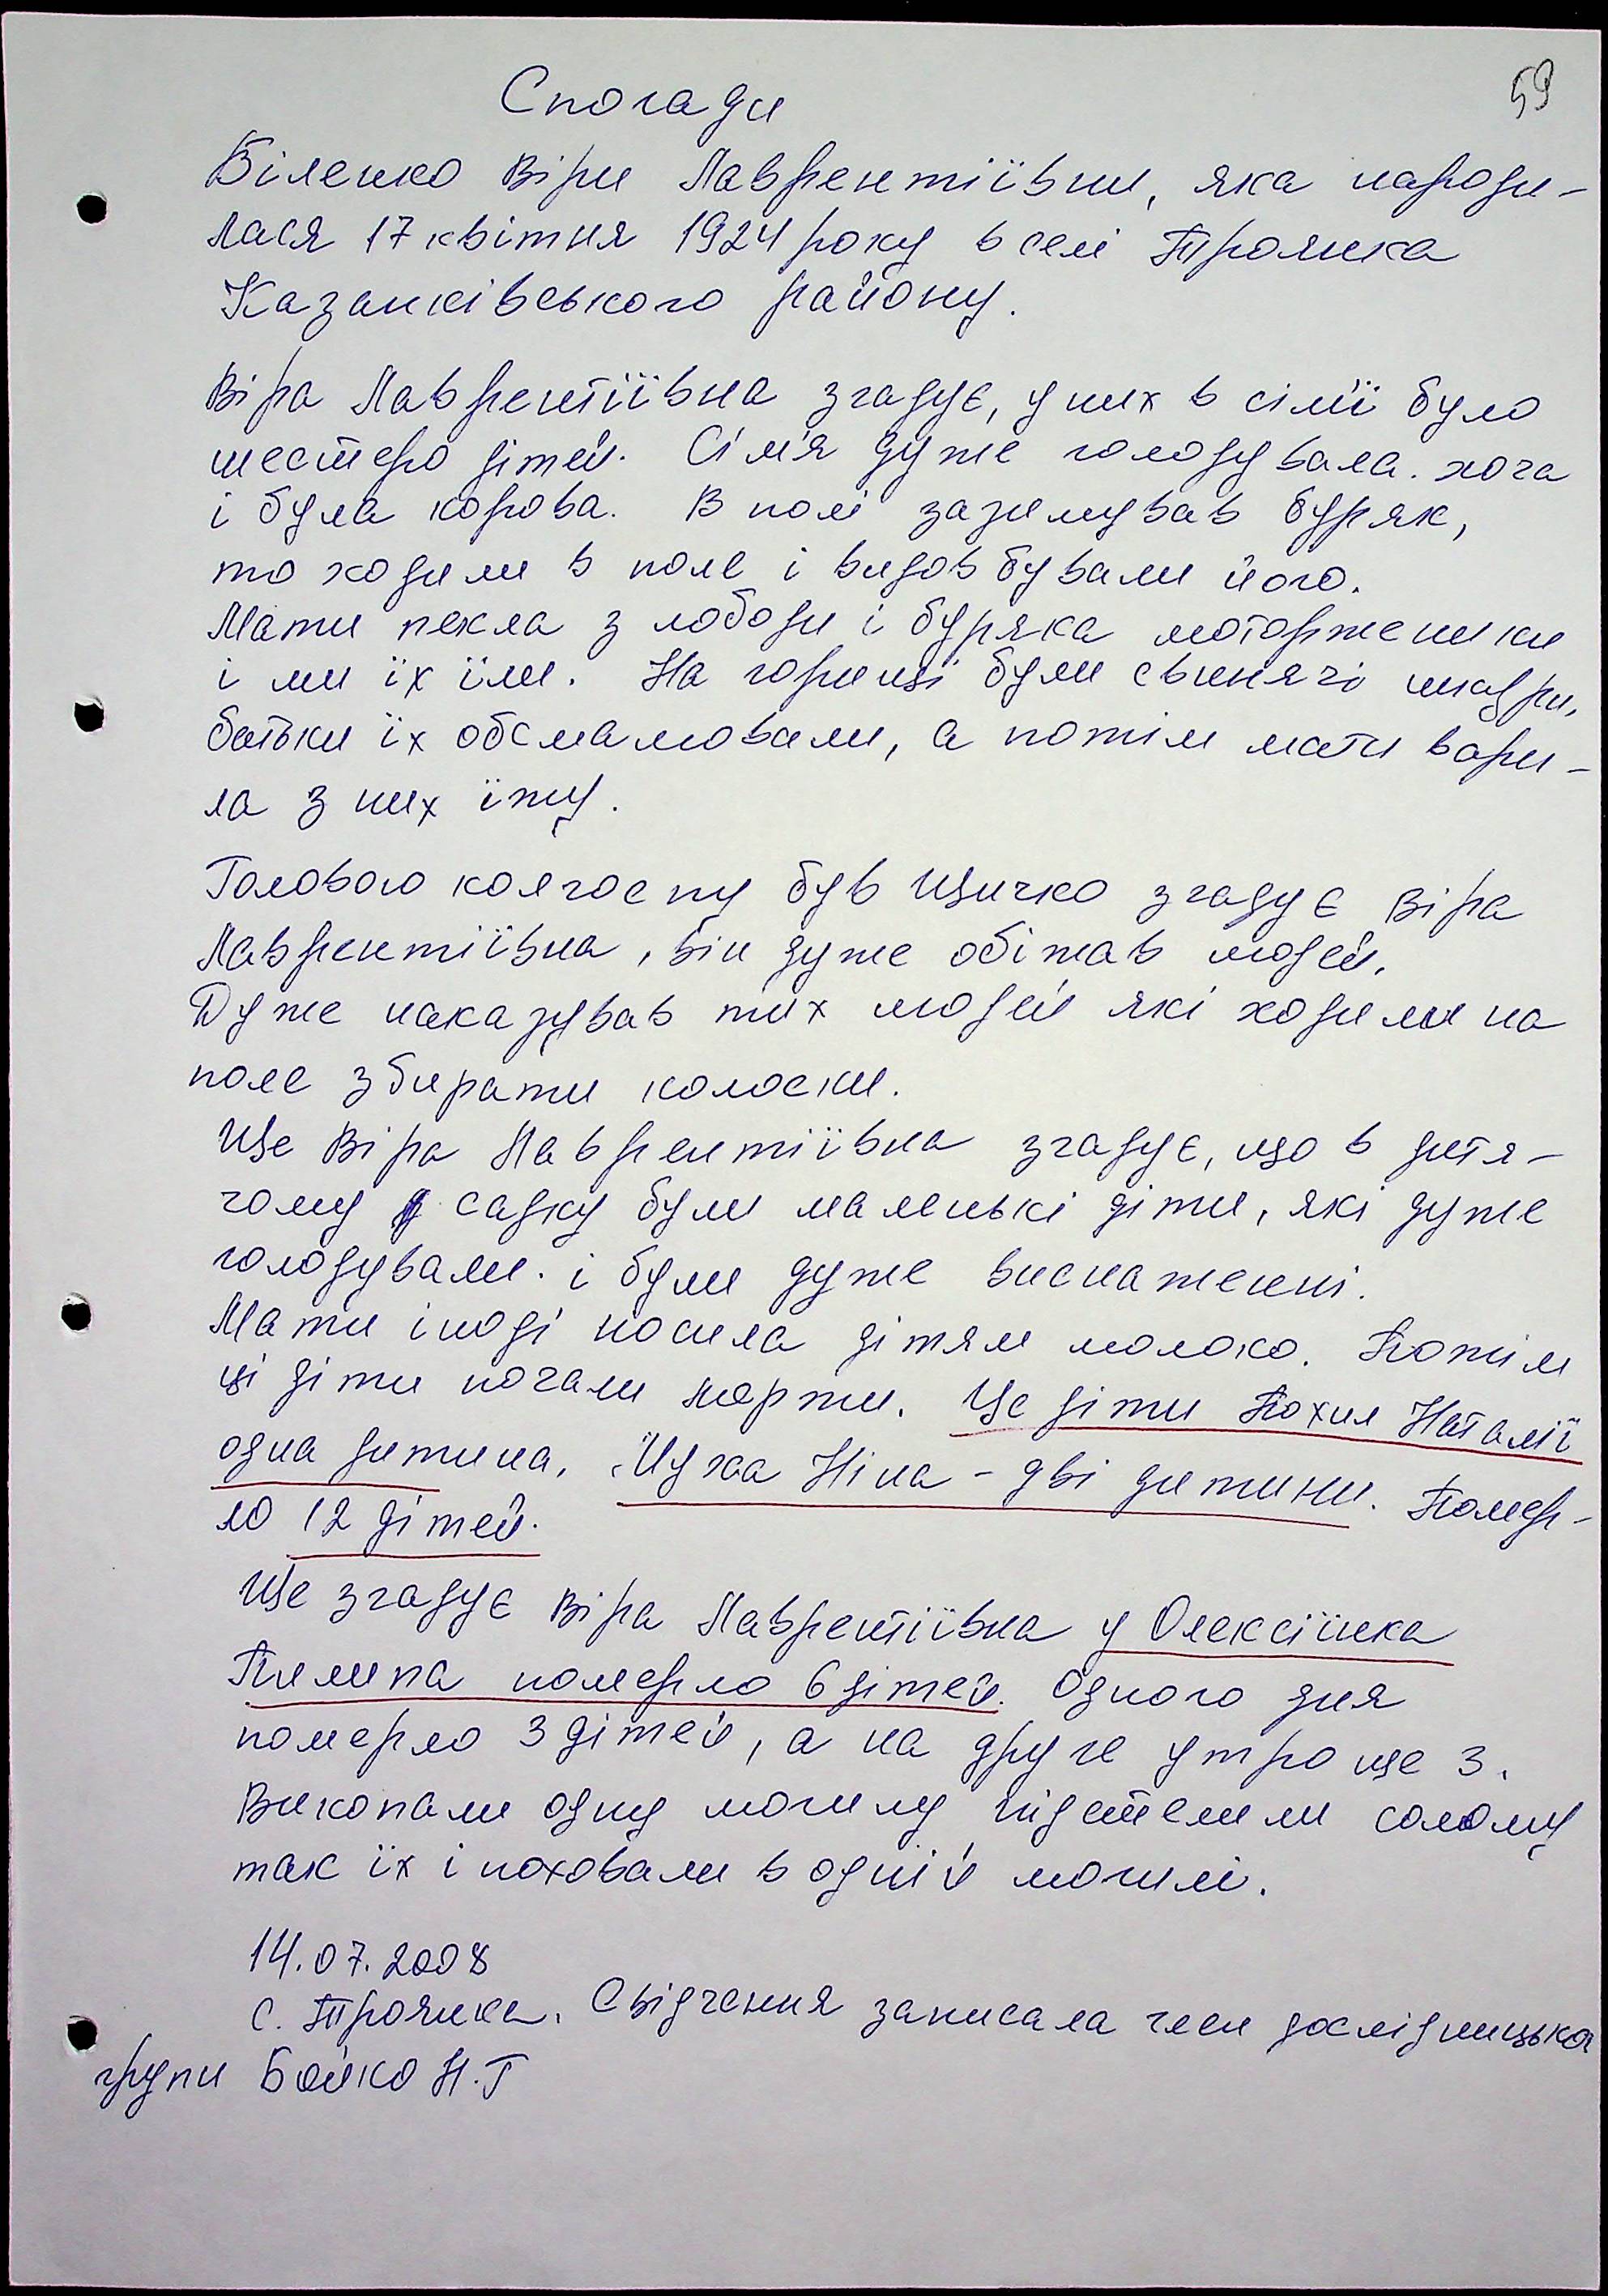 59
Спогади
Біленко Віри Лаврентіївни, яка народи-
лася 17 квітня 1924 року в селі Троянка
Казанківського району.
Віра Лаврентіївна згадує, у них в сім'ї було
шестеро дітей. Сім'я дуже голодувала. хоча
і була корова. В полі зазимував буряк,
то ходили в поле і видовбували його.
Мати пекла з лободи і буряка моторженики
і ми їх їли. На горищі були свинячі шкури,
батьки їх обсмалювали, а потім мати вари-
ла з них їжу.
Головою колгоспу був Щичко згадує Віра
Лаврентіївна, він дуже обіжав людей.
Дуже наказував тих людей які ходили на
поле збирати колоски.
Ще Віра Лаврентіївна згадує, що в дитя-
чому садку були маленькі діти, які дуже
голодували. і були дуже виснаженні.
Мати іноді носила дітям молоко. Потім
ці діти почали мерти. Це діти Похил Наталії
одна дитина, Цуха Ніна - дві дитини. Помер-
ло 12 дітей.
Ще згадує Віра Лаврентіївна у Олексіїнка
Пилипа померло 6 дітей. Одного дня
померло 3 дітей, а на друге утро ще 3.
Викопали одну могилу підстелили солому
так їх і поховали в одній могилі.
14.07.2008
с. Троянка. Свідчення записала член дослідницька
групи Бойко Н.Г